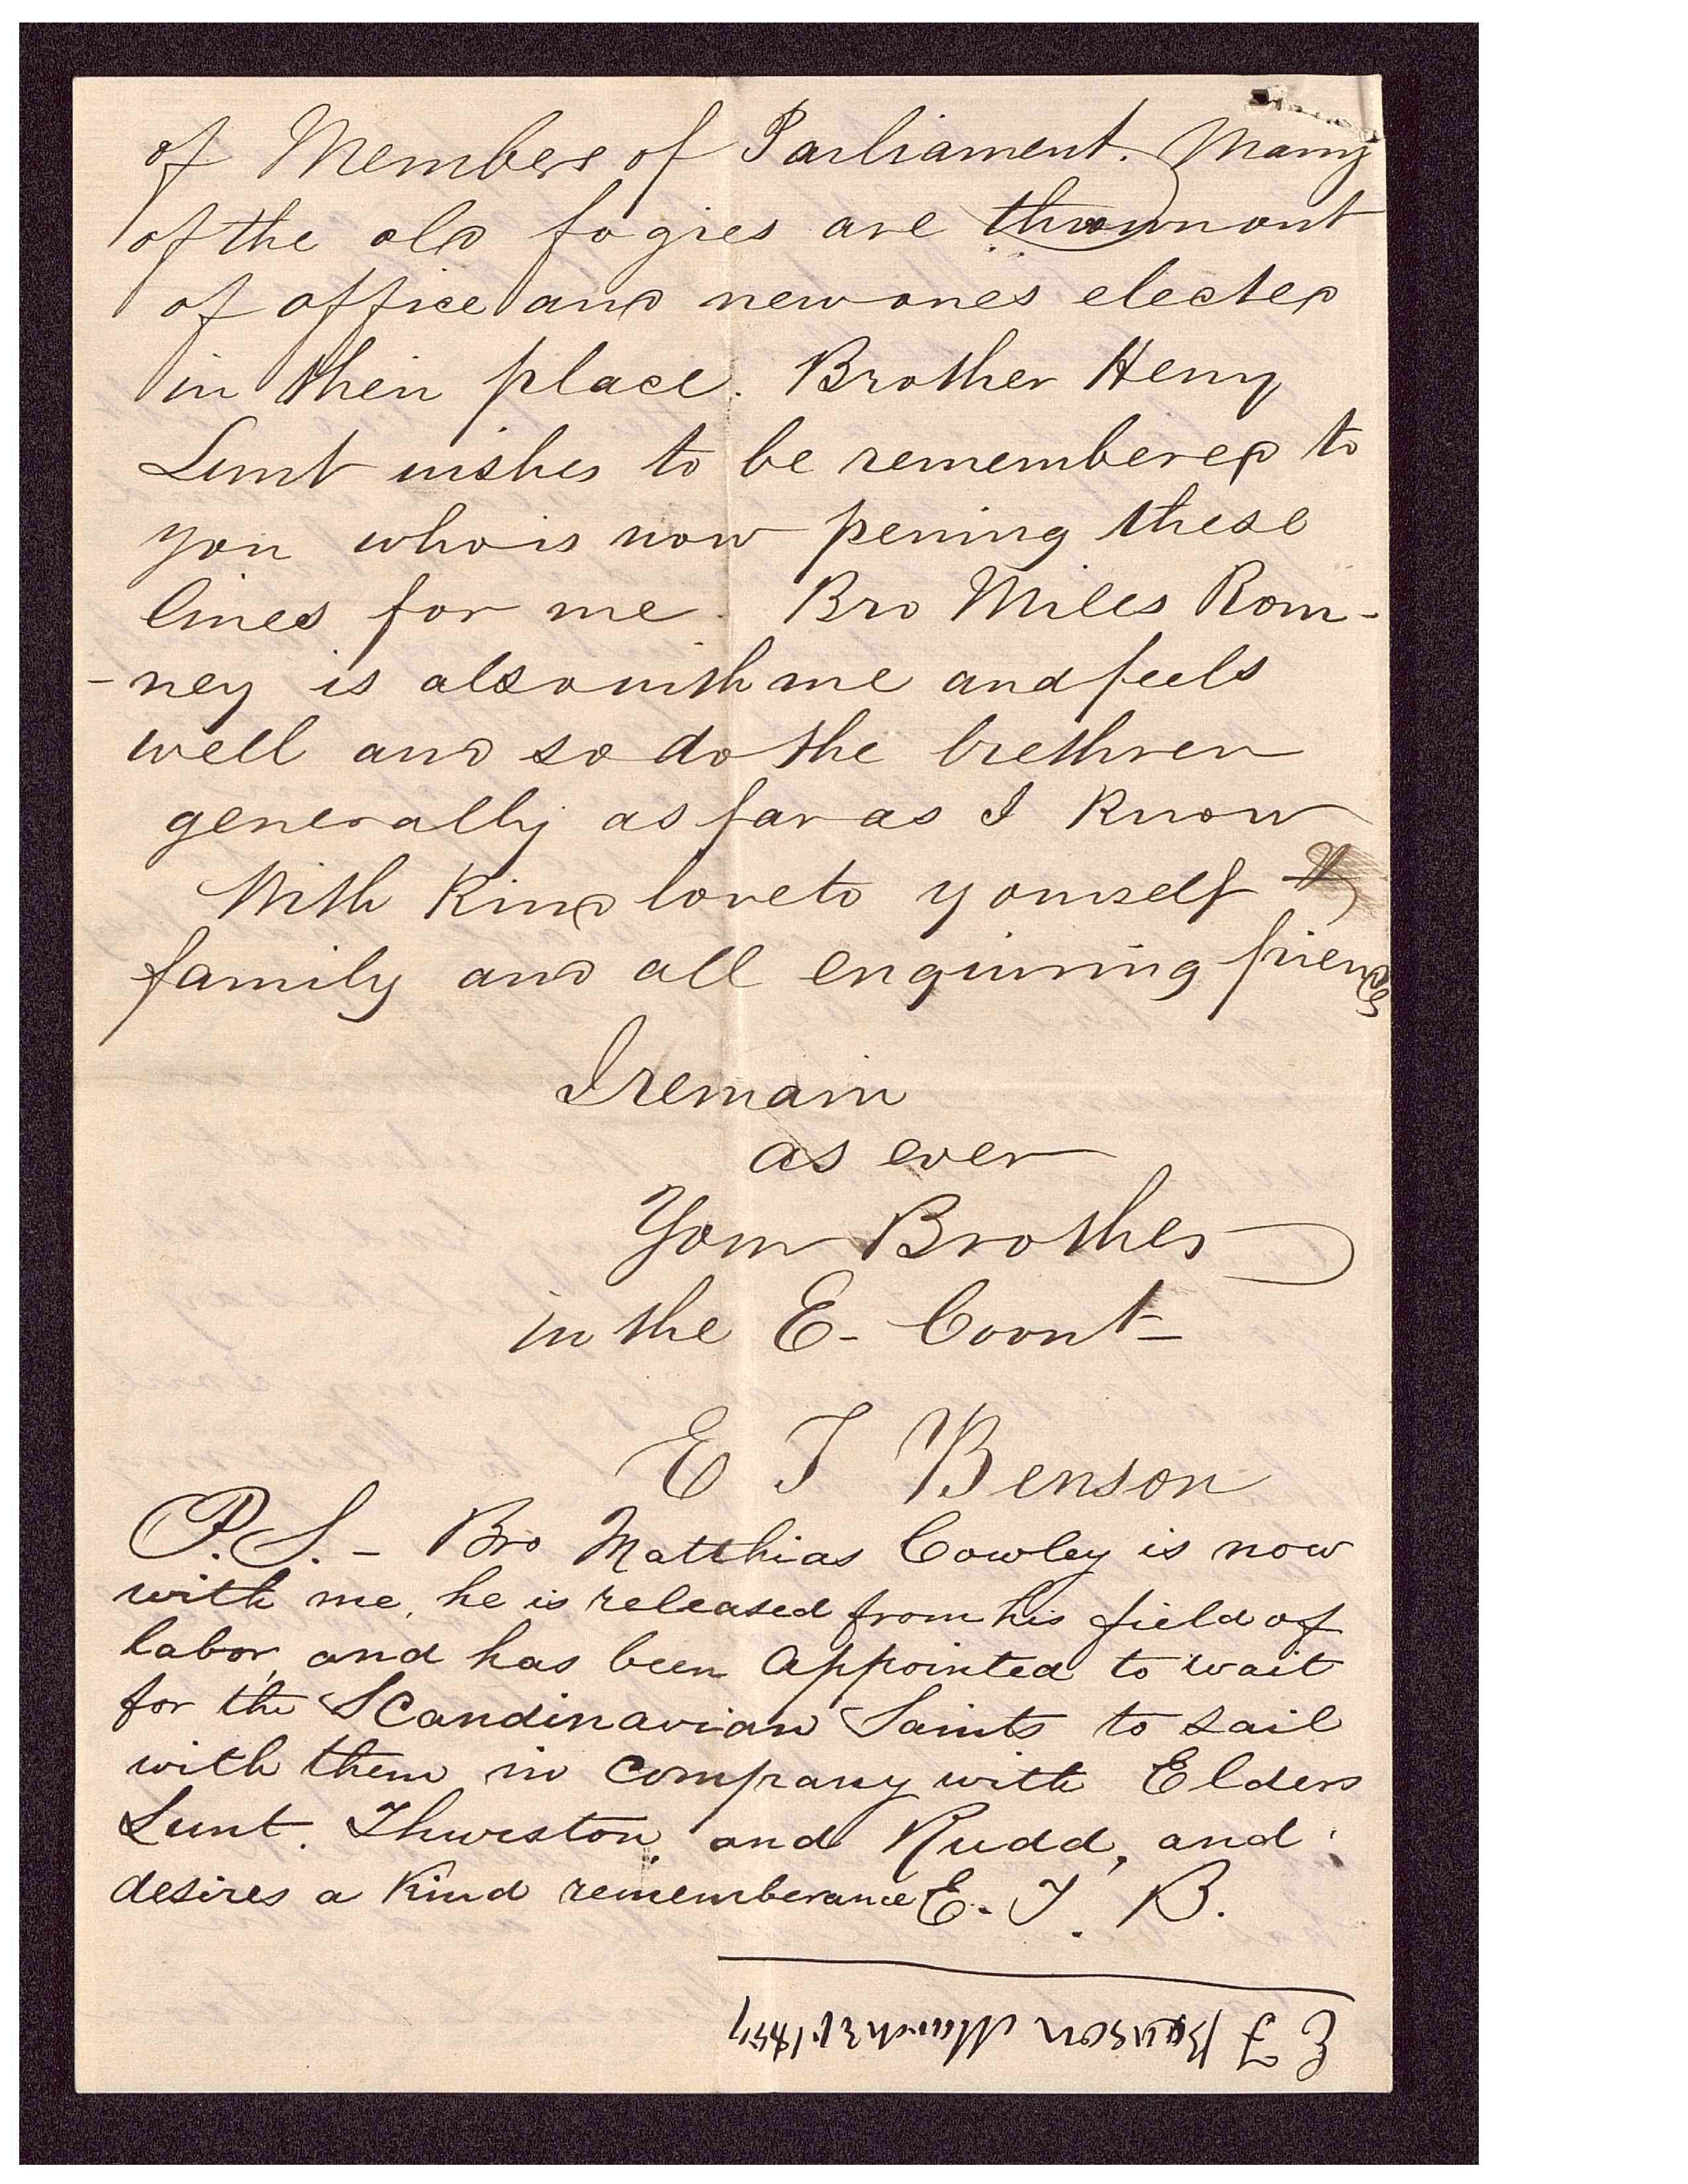 of Members of Parliament. Many
of the old fogies are thrown out
of office and new ones elected
in their place. Brother Henry
Lunt wishes to be remembered to
you who is now pening these
lines for me. Bro Miles Rom-
-ney is also with me and feels
well and so do the brethren
generally as far as I know
With Kind love to yourself
family and all enquiring friends
I remain
as ever
Your Brother
in the E- Covnt-
E T Benson
P.S. - Bro Matthias Cowley is now
with me, he is released from his field of
labor, and has been appointed to wait
for the Scandinavian Saints to sail
with them in company with Elders
Lunt. Thurston, and Rudd, and
desires a Kind rememberance E. T. B.
E T Benson March 31 1857